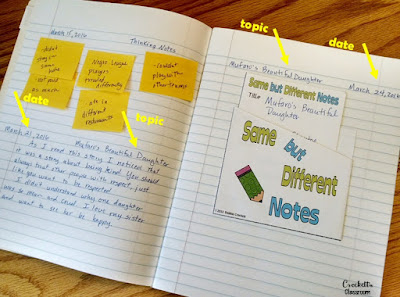 topic
date
March 15, 2016
Thinking Notes
didn't
play
same
not paid
as much
Negro League
players
treated
differently
couldn't
play with
other teams
ate in
different
restaurants
date
topic
March 21, 2016 Mufaro's Beautiful Daughter
As I read this story I noticed that
it was a story about being kind. You should
always treat other people with respect, just
like you want to be respected.
I didn't understand why one daughter
was so mean and cruel. I love my sister
and want to see her be happy.
Mufaro's Beautiful Daughter
March 24, 2016
Same but Different Notes
Title: Mufaro's Beautiful
Daughter
Same but
Different
Notes
Crockett's
Classroom